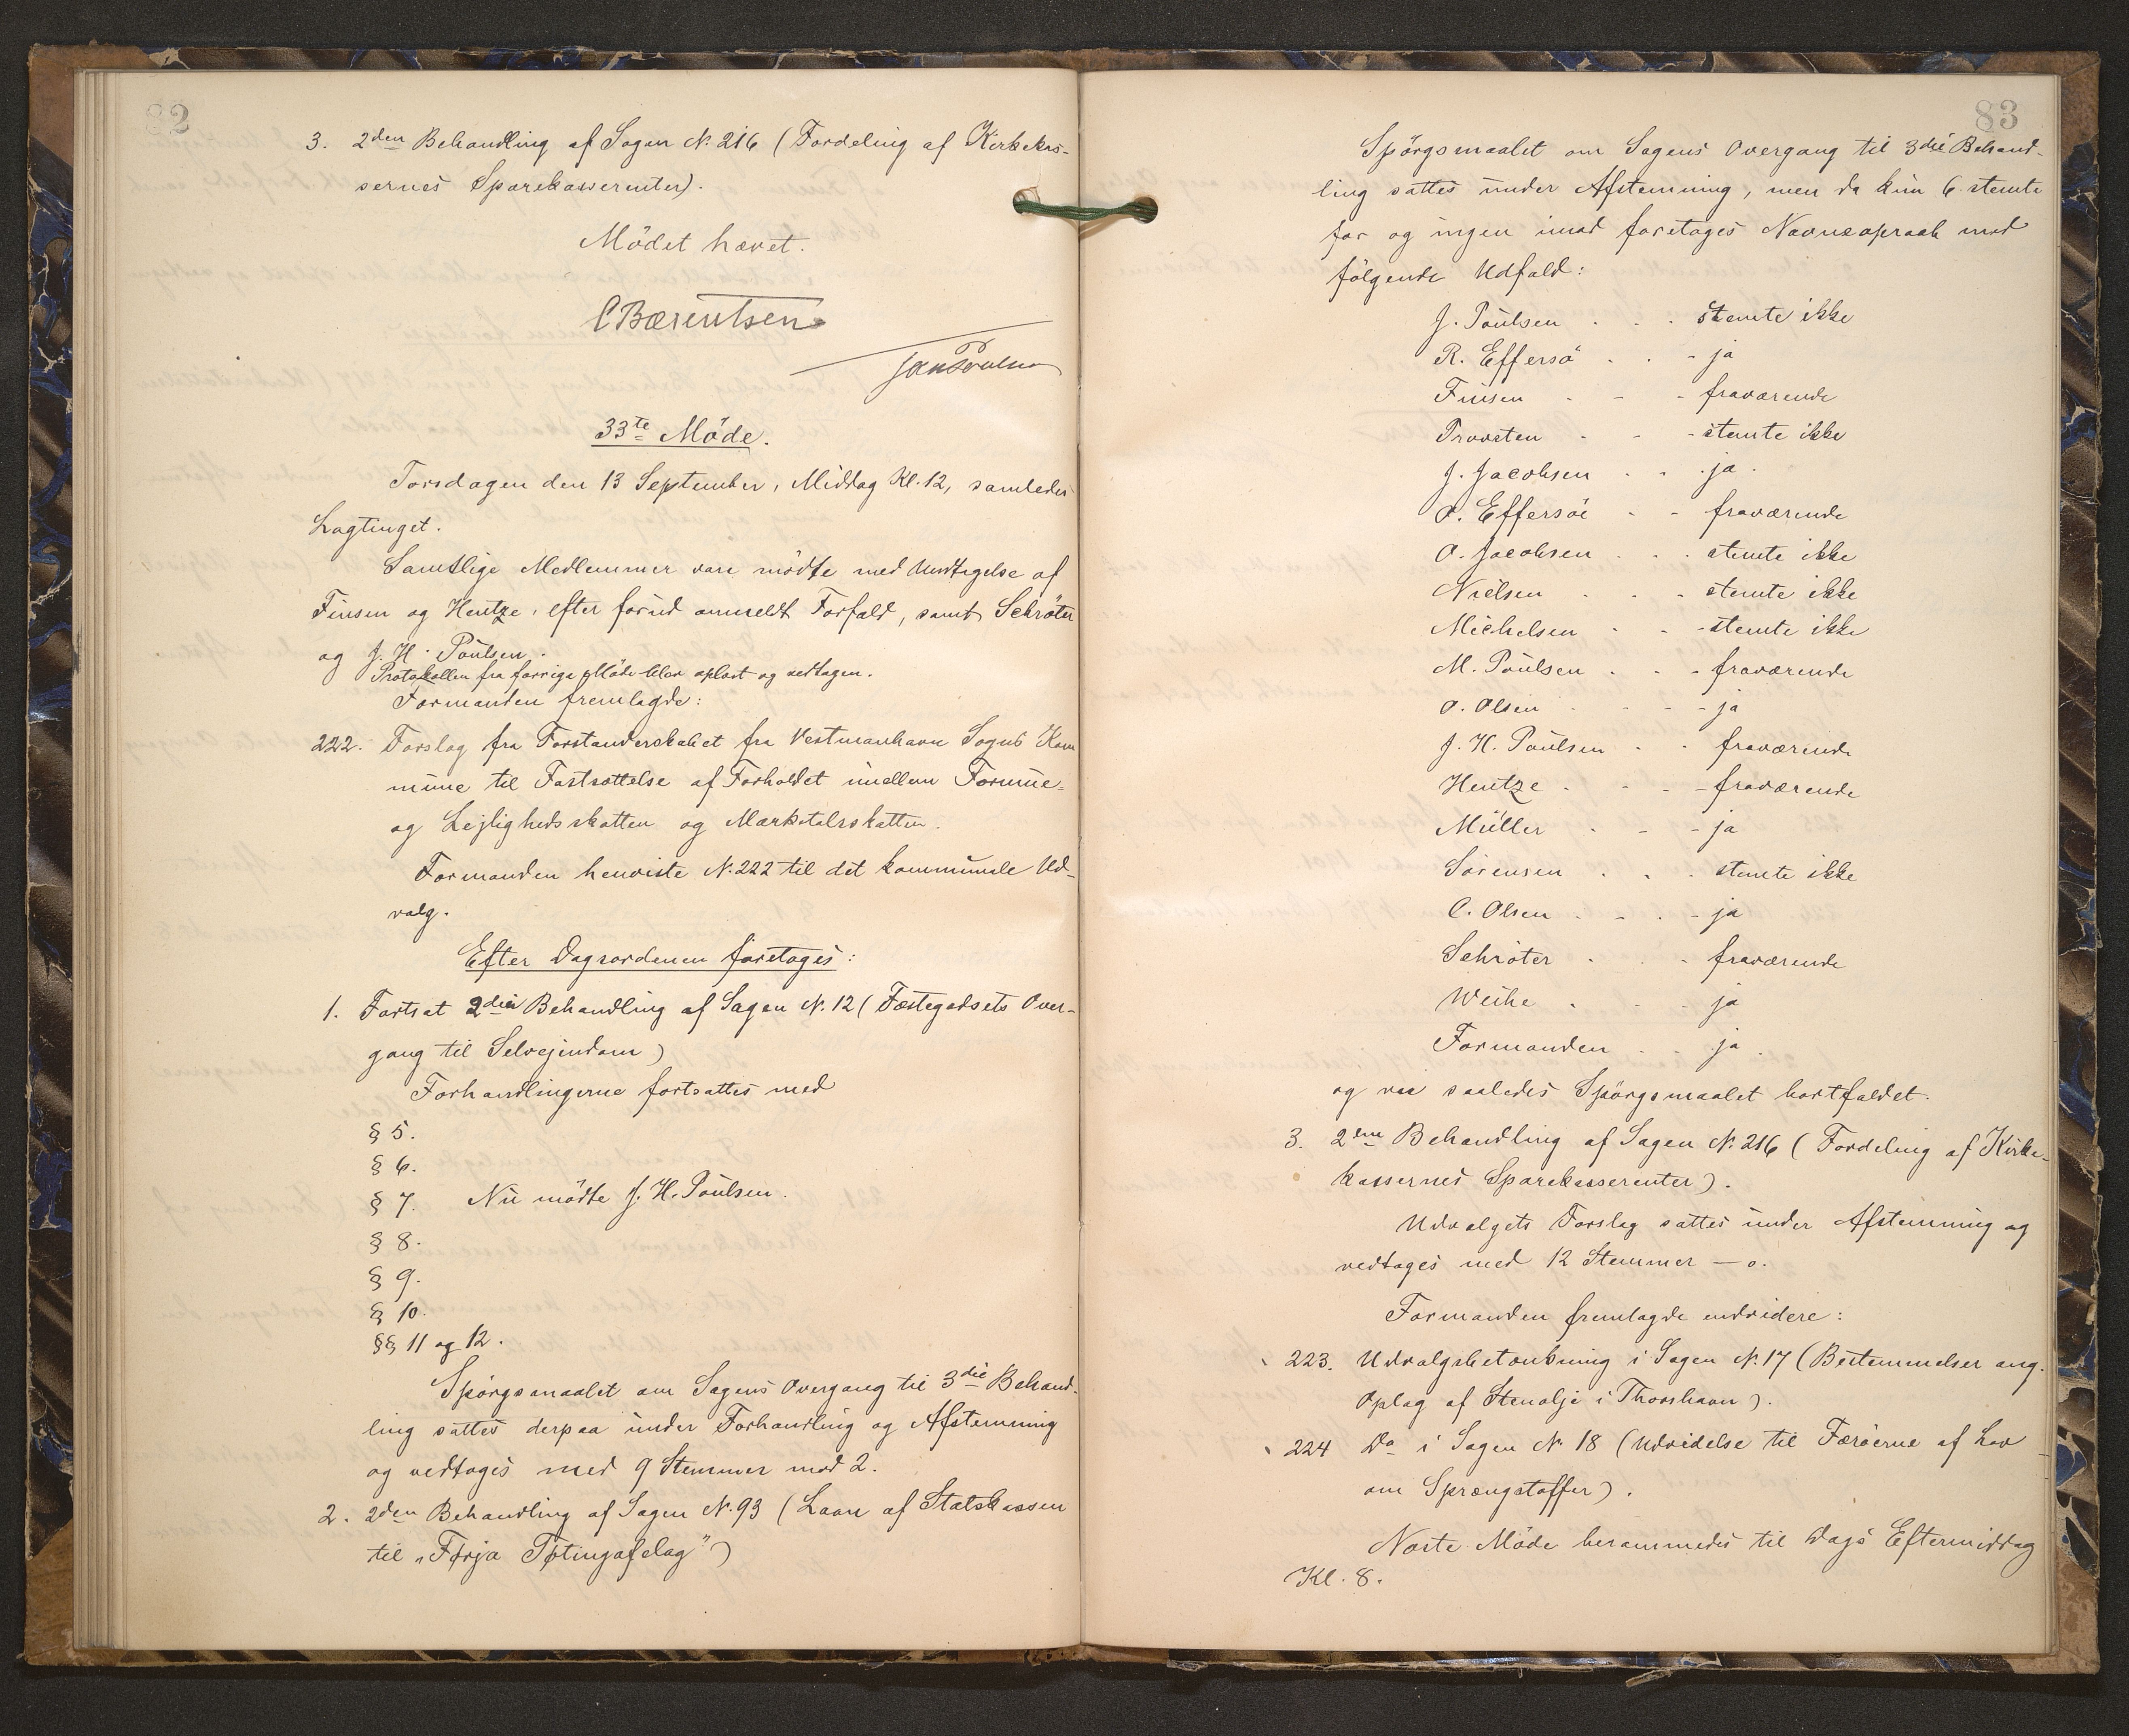 82
3. 2den Behandling af Sagen N. 216 (Fordeling af Kirkekas-
sernes Sparekasserenter).
Mödet hævet.
C Bærentsen
33te Möde.
Torsdagen den 13 September, Middag Kl. 12, samledes
Lagtinget.
Samtlige Medlemmer vare mödte med Undtagelse af
Finsen og Hentze, efter forud anmeldt Forfald, samt Schröter
og J. H. Poulsen.
Protokollen fra forrige Möde blev oplæst og vedtagen.
Formanden fremlagde:
222. Forslag fra Forstanderskabet fra Vestmanhavn Sogns Kom
mune til Fastsættelse af Forholdet imellem Formue-
og Lejlighedsskatten og Marketalsskatten.
Formanden henviste N. 222 til det kommunale Ud-
valg.
Efter Dagsordenen foretoges:
1. Fortsat 2den Behandling af Sagen N. 12 (Fæstegodsets Over-
gang til Selvejendom)
Forhandlingerne fortsattes med
§ 5.
§ 6.
§ 7. Nu mödte J. H. Poulsen.
§ 8.
§ 9.
§ 10.
§§ 11 og 12.
Spörgsmaalet om Sagens Overgang til 3die Behand-
ling sattes derpaa under Forhandling og Afstemning
og vedtoges med 9 Stemmer mod 2.
2. 2den Behandling af Sagen N. 93 (Laan af Statskassen
til „Førja Tøtingafelag")
83
Spörgsmaalet om Sagens Overgang til 3die Behand-
ling sattes under Afstemning, men da kun 6 stemte
for og ingen imod foretoges Navneopraab med
fölgende Udfald:
J. Poulsen . . . stemte ikke
R. Effersö . . - ja
Finsen - - - fraværende
Provsten - - - stemte ikke
J. Jacobsen . . . ja .
Effersöe - - fraværende
O. Jacobsen . . . stemte ikke
Nielsen . . . stemte ikke
Michelsen - - - stemte ikke
M. Poulsen . - - fraværende
O. Olsen - - - - ja
J. H. Poulsen - . fraværende
Hentze . - - - fraværende
Müller . - - ja
Sörensen . . . stemte ikke
C. Olsen - - . - ja
Schröter . . . fraværende
Weihe . - - ja
Formanden . . ja .
og var saaledes Spörgsmaalet bortfaldet.
3. 2den Behandling af Sagen N. 216 (Fordeling af Kirke-
kassernes Sparekasserenter).
Udvalgets Forslag sattes under Afstemning og
vedtoges med 12 Stemmer — 0.
Formanden fremlagde endvidere:
223. Udvalgsbetænkning i Sagen N. 17 (Bestemmelser ang.
Oplag af Stenolje i Thorshavn).
224 Do i Sagen N. 18 (Udvidelse til Færöerne af Lov
om Sprængstoffer).
Næste Möde berammedes til Dags Eftermiddag
Kl. 8.